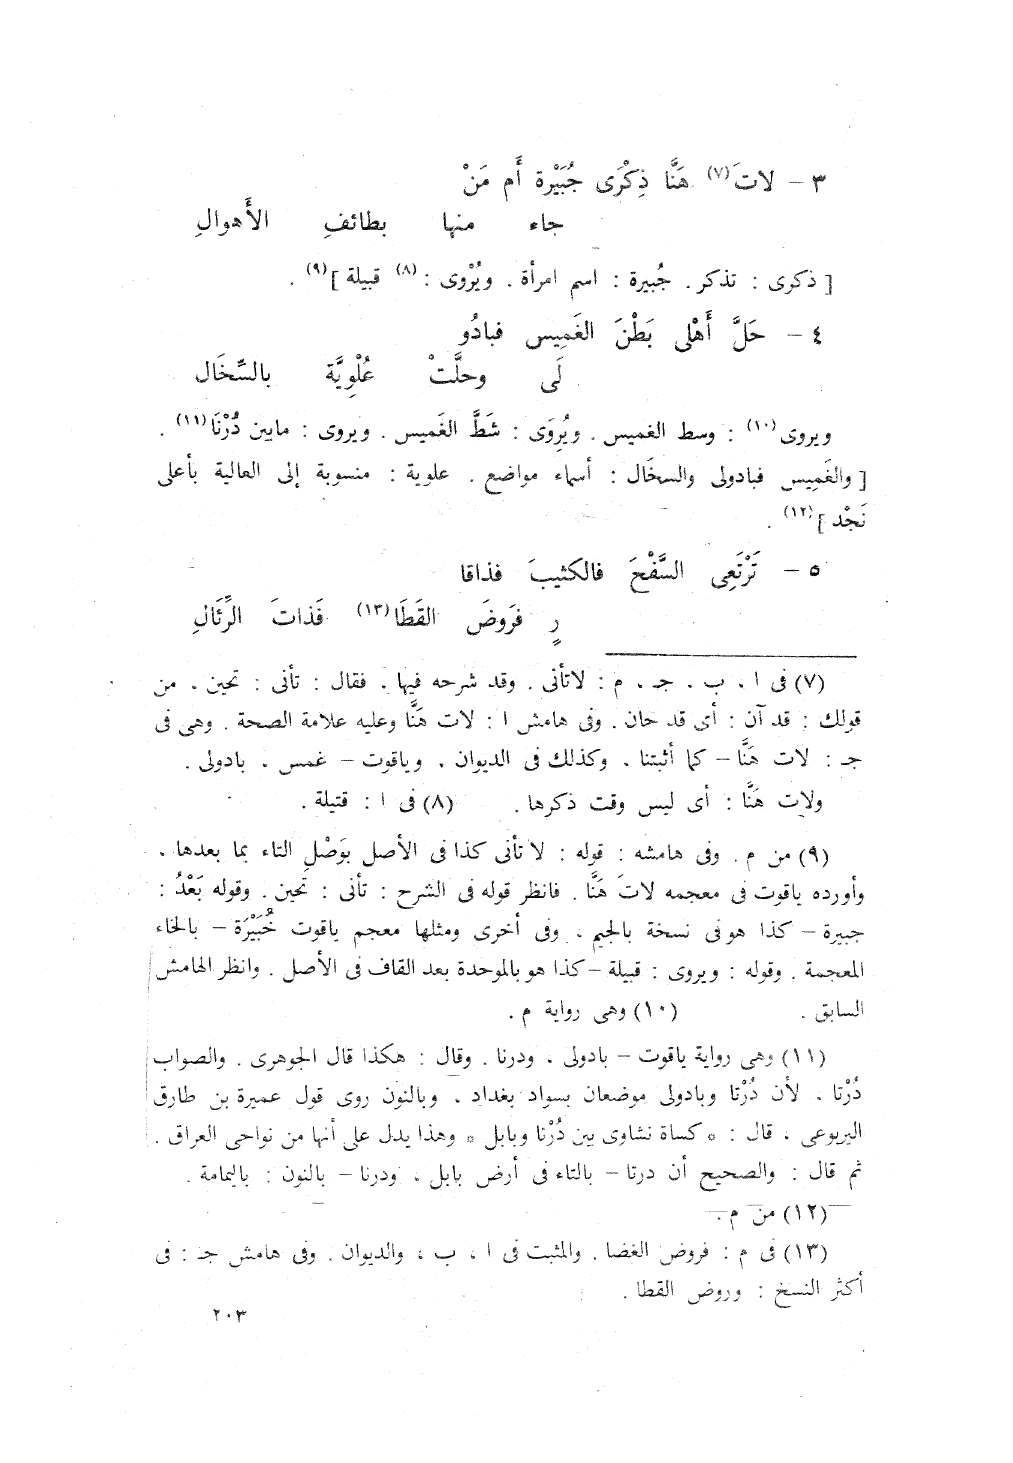 ٣ – لاتَ(٧) هَنَّا ذِكْرَى جُبَيْرة أَم مَنْ
جاء منها بطائفِ الأَهوالِ
[ ذكرى : تذكر . جُبيرة : اسم امرأة . ويُرْوى : (٨) قبيلة ](٩) .
٤ – حَلَّ أَهْلى بَطْنَ الغَمِيس فبادُو
لَى وحلَّتْ عُلْوِيَّة بالسِّخَال
ويروى(١٠) : وسط الغميس . ويُروَى : شَطَّ الغَميس . ويروى : مابين دُرْنَا(١١) .
[ والغَمِيس فبادولى والسخَال : أسماء مواضع . علوية : منسوبة إلى العالية بأعلى
نَجْد ](١٢) .
٥ – تَرْتَعِى السَّفْحَ فالكثيبَ فذاقا
رٍ فرَوضَ القَطَا(١٣) فَذاتَ الرِّئَالِ
(٧) فى ا ، ب ، جـ ، م : لاتأنى . وقد شرحه فيها . فقال : تأنى : تحين . من
قولك : قد آن : أى قد حان . وفى هامش ا : لات هَنَّا وعليه علامة الصحة . وهى فى
جـ : لات هَنَّا – كما أثبتنا . وكذلك فى الديوان . وياقوت – غمس . بادولى .
ولات هَنَّا : أى ليس وقت ذكرها . (٨) فى ا : قتيلة .
(٩) من م . وفى هامشه : قوله : لا تأنى كذا فى الأصل بوَصْلِ التاء بما بعدها .
وأورده ياقوت فى معجمه لاتَ هَنَّا . فانظر قوله فى الشرح : تأنى : تحين . وقوله بَعْدُ :
جبيرة – كذا هو فى نسخة بالجيم . وفى أخرى ومثلها معجم ياقوت خُبَيْرَة – بالخاء
المعجمة . وقوله : ويروى : قبيلة – كذا هو بالموحدة بعد القاف فى الأصل . وانظر الهامش
السابق . (١٠) وهى رواية م .
(١١) وهى رواية ياقوت – بادولى ، ودرنا . وقال : هكذا قال الجوهرى . والصواب
دُرْتا ، لأن دُرْتا وبادولى موضعان بسواد بغداد . وبالنون روى قول عميرة بن طارق
اليربوعى ، قال : * كساة نشاوى بين دُرْنا وبابل * وهذا يدل على أنها من نواحى العراق .
ثم قال : والصحيح أن درتا – بالتاء فى أرض بابل ، ودرنا – بالنون : باليمامة .
(١٢) من م .
(١٣) فى م : فروض الغضا . والمثبت فى ا ، ب ، والديوان . وفى هامش جـ : فى
أكثر النسخ : وروض القطا .
٢٠٣